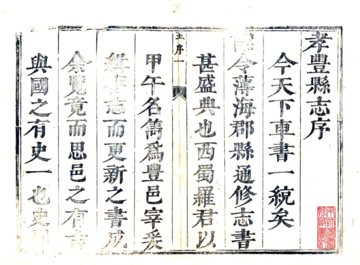 孝豐縣志序
今天下車書一統矣
令薄海郡縣通修志書
甚盛典也西蜀羅君以
序一
甲午名雋爲豐邑宰爰
志而更新之書成
余覽竟而思邑之有
與國之有史一也史